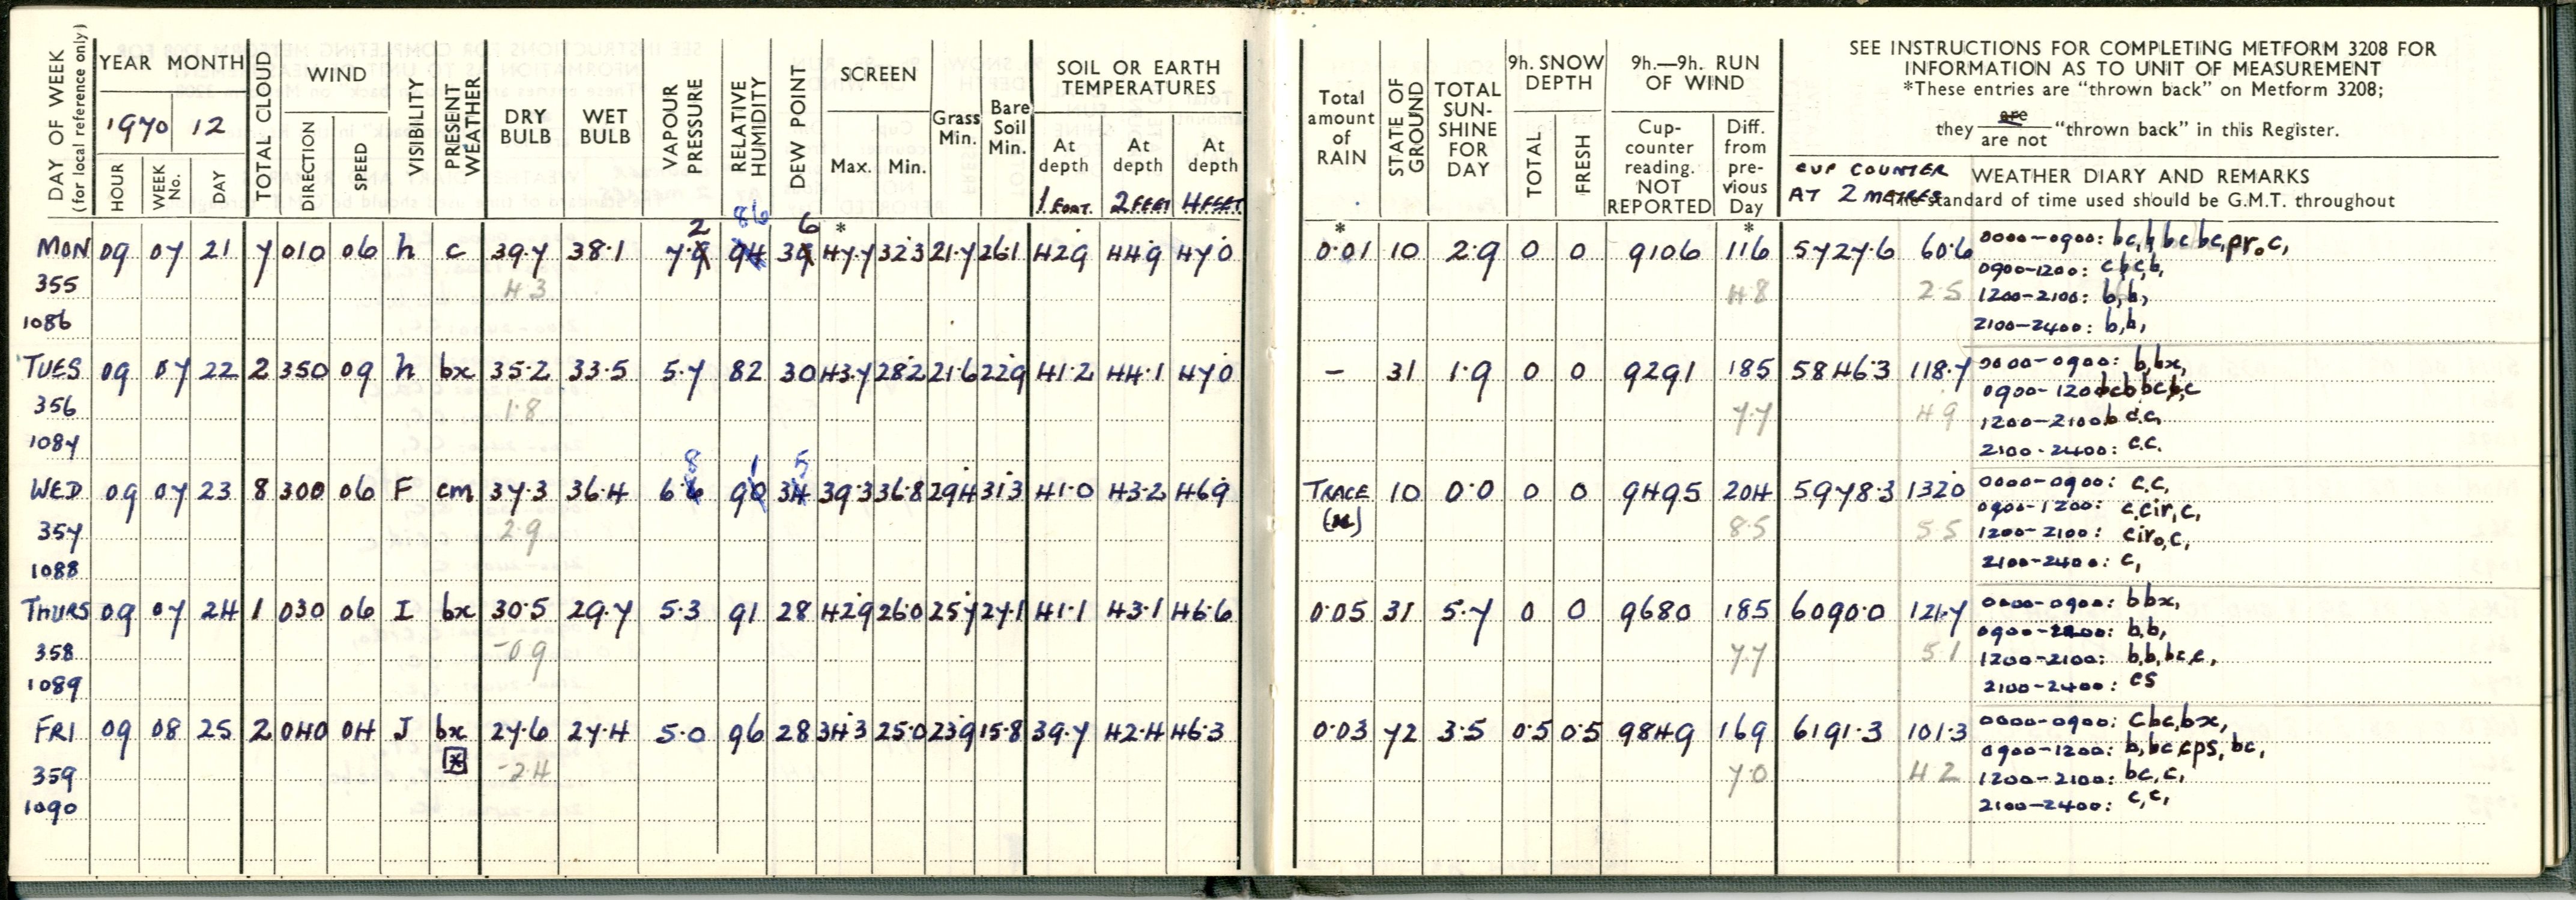 DAY OF WEEK (for local reference only)
YEAR MONTH
1970 12
HOUR WEEK No. DAY
TOTAL CLOUD
WIND
DIRECTION SPEED
VISIBILITY
PRESENT WEATHER
DRY BULB
WET BULB
VAPOUR PRESSURE
RELATIVE HUMIDITY
DEW POINT
SCREEN
Max. Min.
Grass Min.
Bare Soil Min.
SOIL OR EARTH TEMPERATURES
At depth At depth At depth
1 FOOT. 2 FEET 4 FEET
Total amount of RAIN
STATE OF GROUND
TOTAL SUN-SHINE FOR DAY
9h. SNOW DEPTH
TOTAL FRESH
9h.—9h. RUN OF WIND
Cup-counter reading. NOT REPORTED
Diff. from pre-vious Day
SEE INSTRUCTIONS FOR COMPLETING METFORM 3208 FOR
INFORMATION AS TO UNIT OF MEASUREMENT
*These entries are "thrown back" on Metform 3208;
they are / are not "thrown back" in this Register.
CUP COUNTER
AT 2 METRES
WEATHER DIARY AND REMARKS
standard of time used should be G.M.T. throughout
2 86 6 * * *
MON 09 07 21 7 010 06 h c 39.7 38.1 7.9 94 47.7 32.3 21.7 26.1 42.9 44.9 47.0 0.01 10 2.9 0 0 9106 116 5727.6 60.6 0000-0900: bc, bc bc, pr₀ c,
355 4.3 4.8 2.5 0900-1200:
1200-2100: b, b,
1086 2100-2400: b, b,
TUES 09 07 22 2 350 09 h bx 35.2 33.5 5.7 82 30 43.7 28.2 21.6 22.9 41.2 44.1 47.0 - 31 1.9 0 0 9291 185 5846.3 118.7 0000-0900: b, bx,
0900-1200
356 1.8 7.7 4.9 1200-2100
1087 2100-2400: c.c.
8 1 5
WED 09 07 23 8 300 06 F cm 37.3 36.4 6.6 90 34 39.3 36.8 29.4 31.3 41.0 43.2 46.9 TRACE 10 0.0 0 0 9495 204 5978.3 132.0 0000-0900: c.c,
0900-1200: c, cir, c,
357 2.9 8.5 5.5 1200-2100: cir₀, c,
1088 2100-2400: c,
THURS 09 07 24 1 030 06 I bx 30.5 29.7 5.3 91 28 42.9 26.0 25.7 27.1 41.1 43.1 46.6 0.05 31 5.7 0 0 9680 185 6090.0 121.7 0000-0900: bbx,
b,b,
358 -0.9 7.7 5.1 1200-2100: b,b,bc,c,
1089 2100-2400: cs
FRI 09 08 25 2 040 04 J bx 27.6 27.4 5.0 96 28 34.3 25.0 23.9 15.8 39.7 42.4 46.3 0.03 72 3.5 0.5 0.5 9849 169 6191.3 101.3 0000-0900: cbc,bx,
0900-1200: b,bc,cps, bc,
359 -2.4 7.0 4.2 1200-2100: bc, c,
1090 2100-2400: c,c,